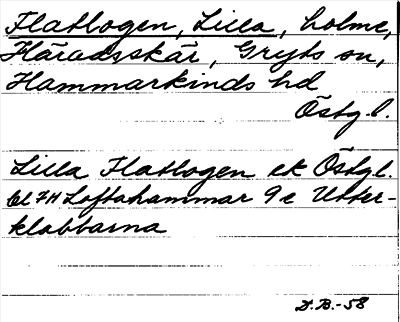 Flatbogen, Lilla, holme,
Häradsskär, Gryts sn,
Hammarkinds hd
Östg.l.
Lilla Flatbogen ek Östgl.
bl 7H Loftahammar 9 e Utter-
klabbarna
D.B.-58